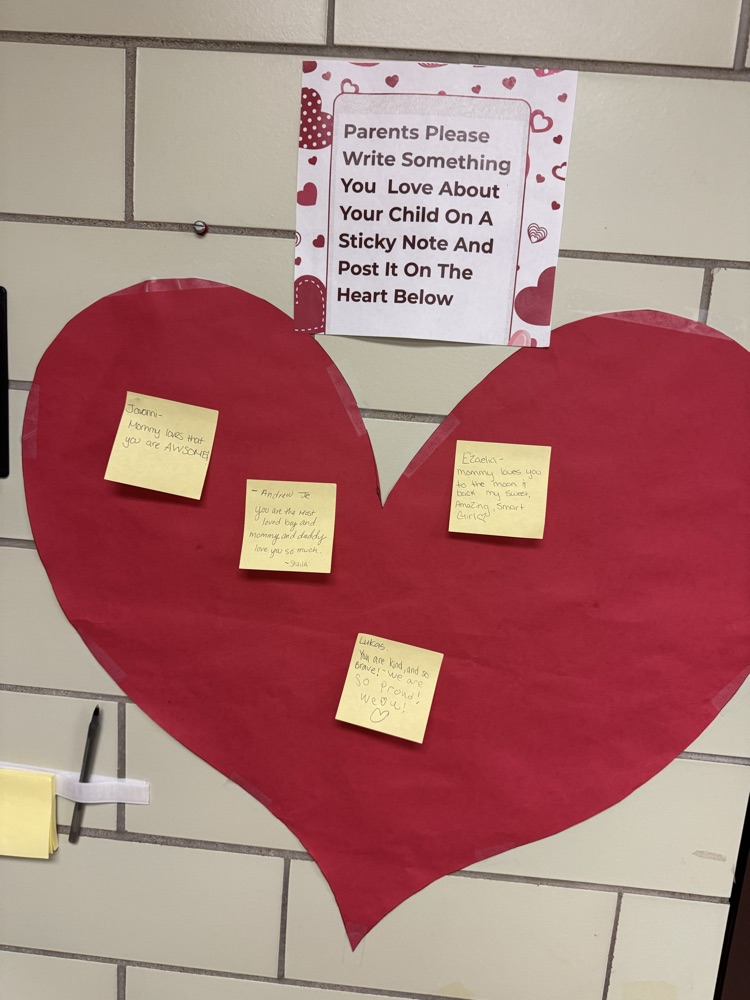 Parents Please
Write Something
You Love About
Your Child On A
Sticky Note And
Post It On The
Heart Below
Jovanni-
Mommy loves that
you are AWSOME
- Andrew Jr
You are the most
loved boy and
mommy and daddy
love you so much.
Ezaelia-
mommy loves you
to the moon &
back my sweet,
Amazing, Smart
Girl♡
Lukas,
You are kind, and so
Brave! - We are
so proud!
We ♡ U!
♡